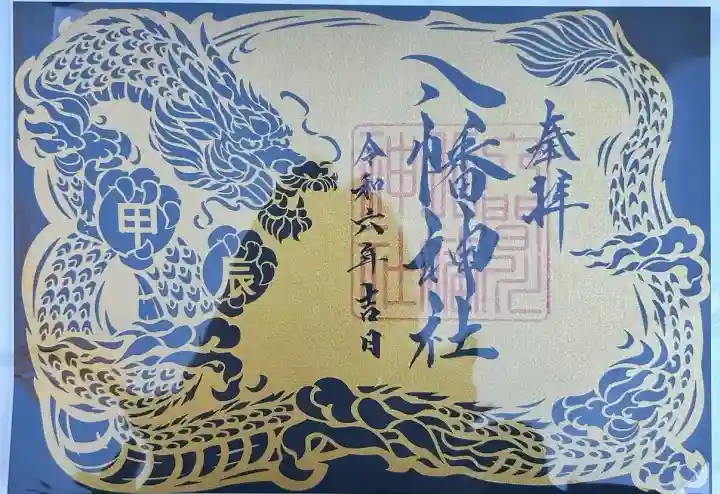 奉拝
八幡神社
令和六年吉日
甲
辰